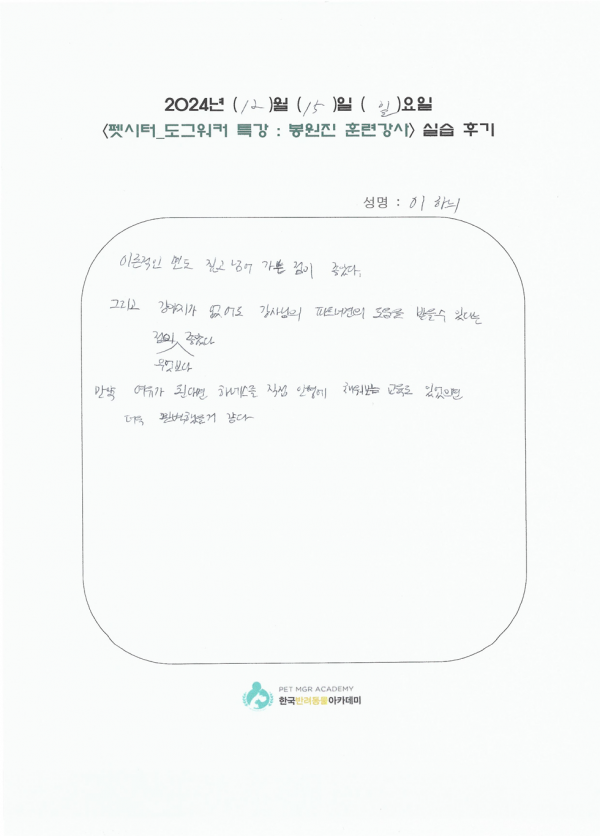 2024년 (12)월 (15)일 (일)요일
<펫시터_도그워커 특강 : 봉원진 훈련강사> 실습 후기
성명 : 이하늬
이론적인 면도 짚고 넘어 가는 점이 좋았다.
그리고 강아지가 없어도 강사님의 파트너견의 도움을 받을수 있다는
점이 좋았다
무엇보다
만약 여유가 된다면 하네스를 직접 인형에 채워보는 교육도 있었으면
더욱 완벽했을거 같다
PET MGR ACADEMY
한국반려동물아카데미